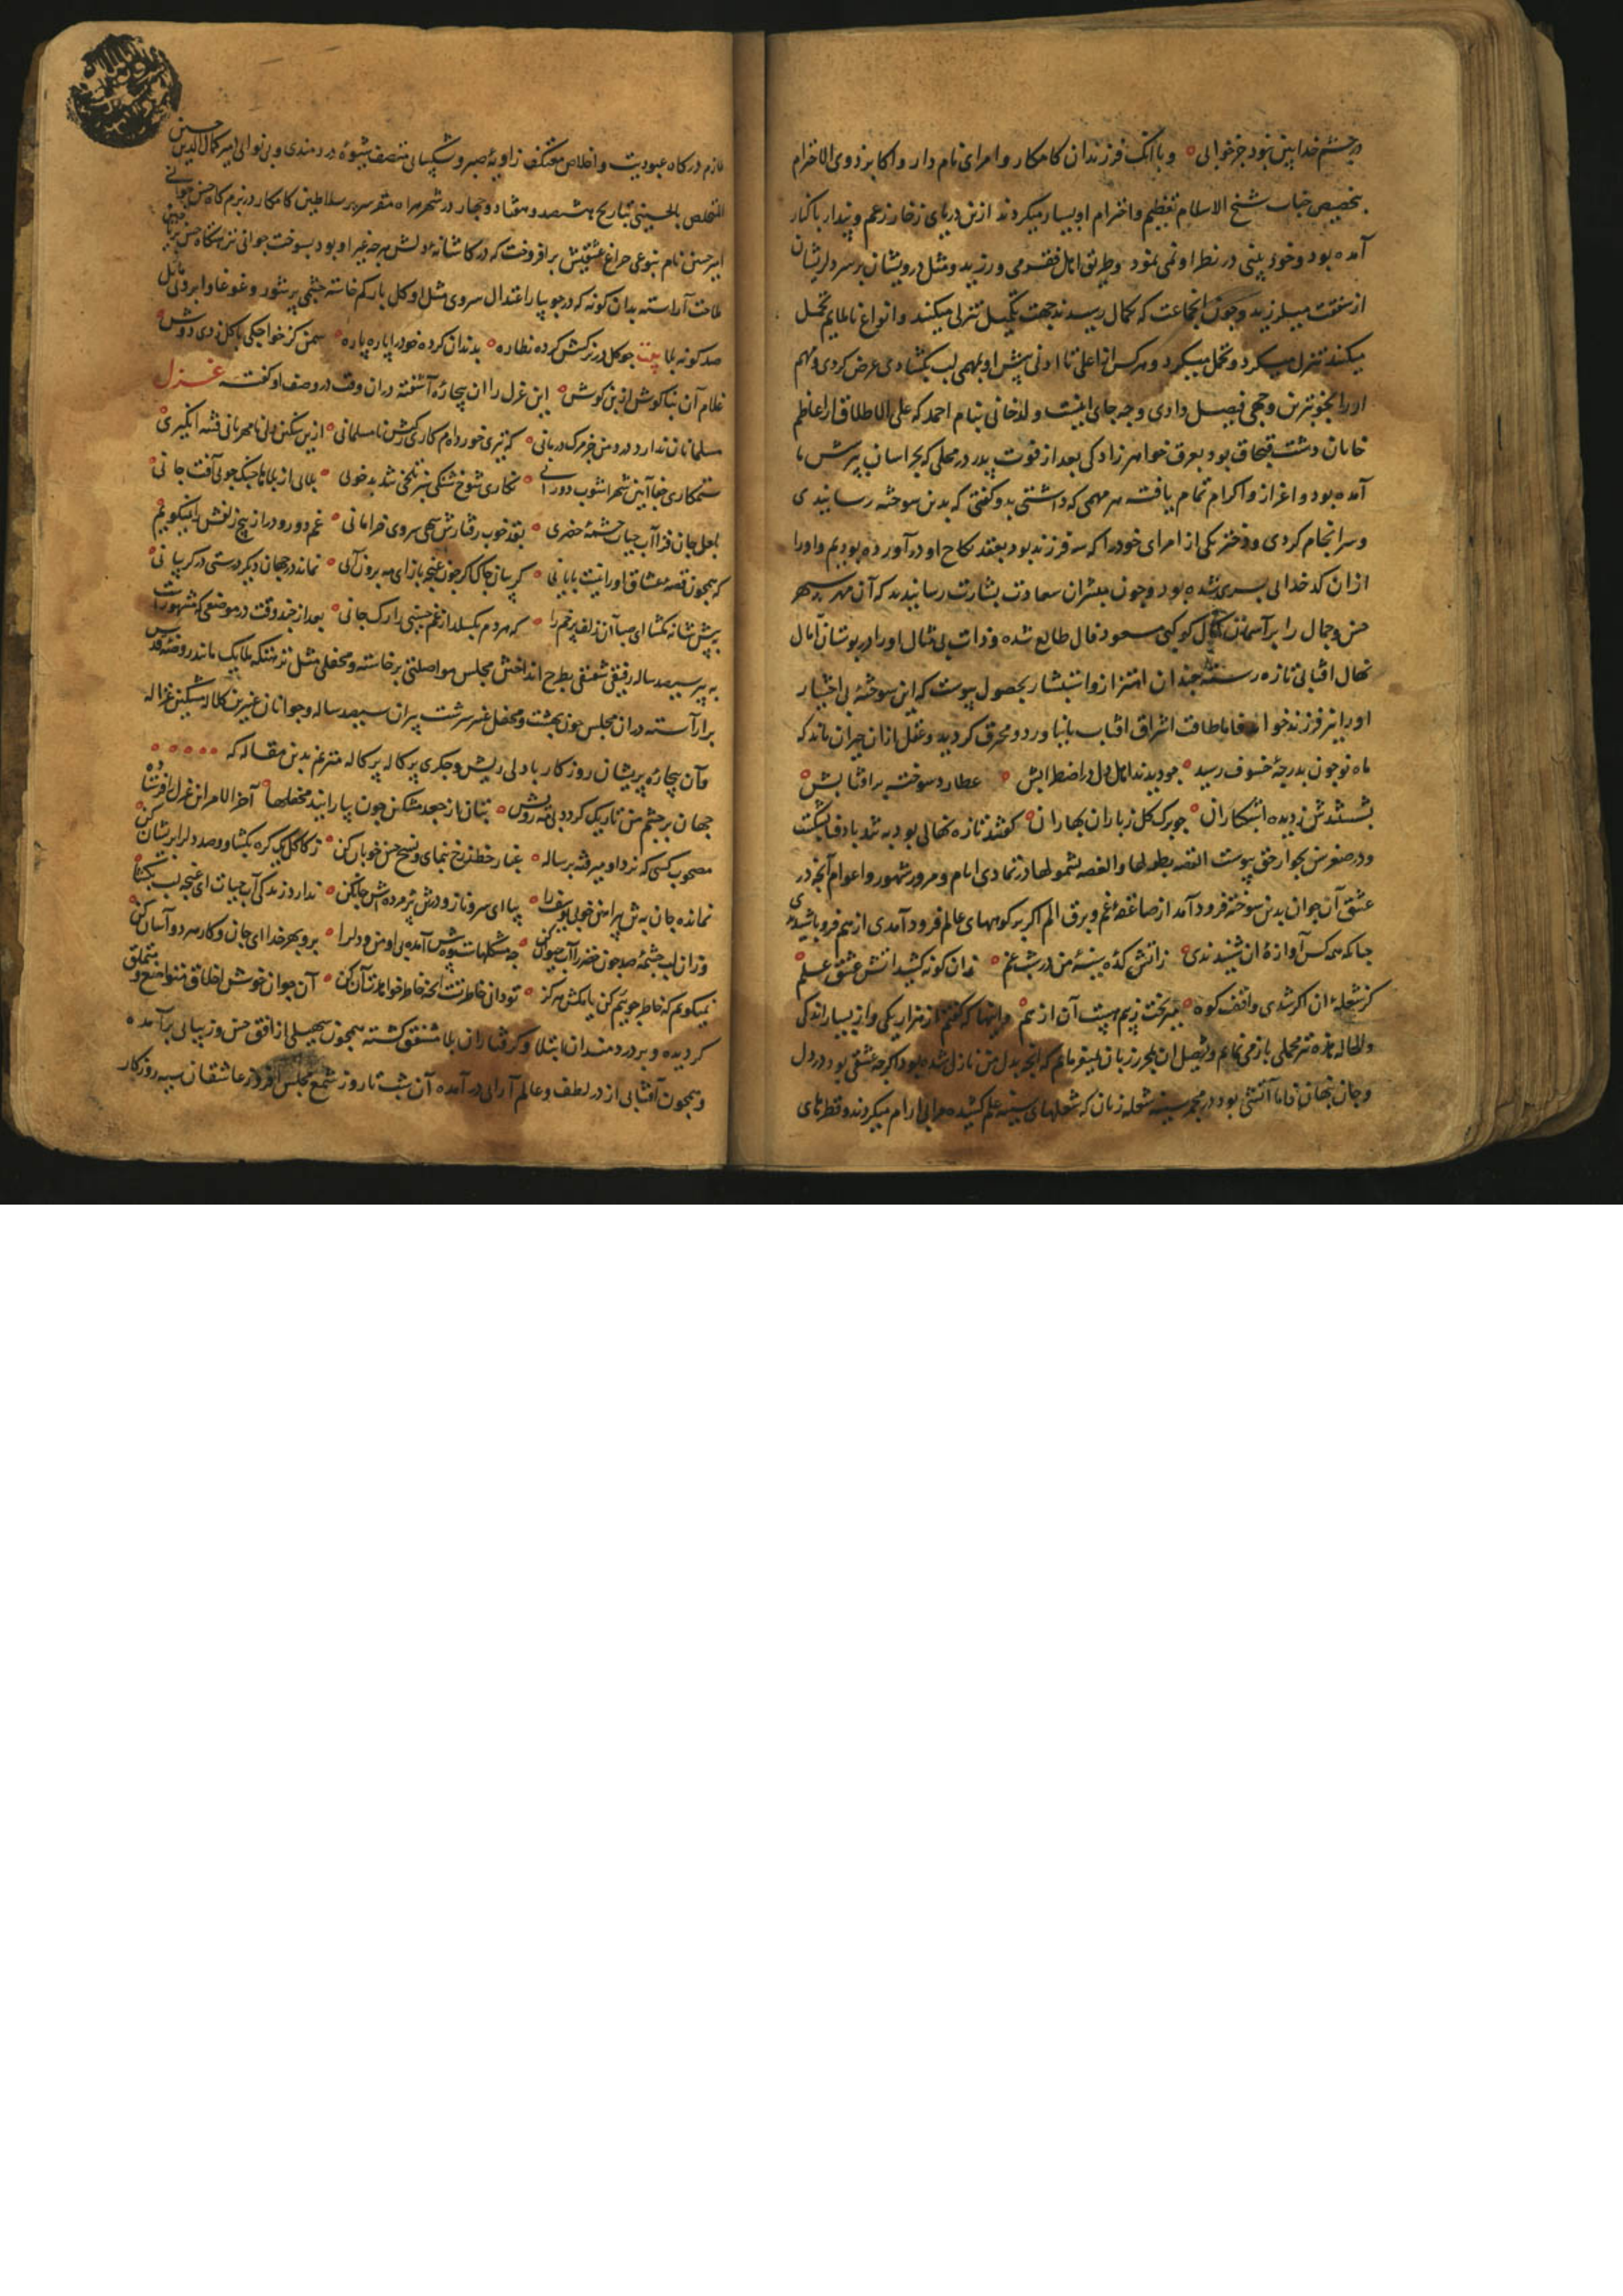 در چشم خدا بین نبود جز خوابی وبا آنک فرزندان کامکار وامرای نام دار واکابر ذوی الاحترام
بتخصیص جناب شیخ الاسلام تعظیم واحترام او بسیار میکردند ازین دریای زخار زعم وپندار باکنار
آمده بود وخود بینی در نظر او نمی نمود وطریق اهل فقر می ورزید ومثل درویشان بر سر دلریشان
از شفقت میلرزید وچون انجماعت که بکمال رسیدند جهت تکمیل تنزل میکنند وانواع ناملایم تحمل
میکنند تنزل میکرد وتحمل میکرد وهرکس از اعلی تا ادنی پیش او بمهمی لب بکشادی عرض کردی ومهم
اورا بخوبترین وجهی فیصل دادی وچه جای اینست ولدخانی بنام احمد که علی الاطلاق از اعاظم
خانان دشت قبچاق بود بعرق خواهر زادکی بعد از فوت پدر در محلی که بخراسان بپرسش ما
آمده بود واعزاز واکرام تمام یافت هر مهمی که داشتی بدو کفتی که بدین سوخته رسانیدی
وسرانجام کردی ودختر یکی از امرای خودرا که سه فرزند بود بعقد نکاح او درآورده بودیم واورا
ازان کدخدایی پسری شده بود وچون مبشران سعادت بشارت رسانیدند که آن مهر سپهر
حسن وجمال را بر آسمان کوکبی مسعود فال طالع شده وذات بی مثال اورا در بوستان آمال
نهال اقبالی تازه رسته چندان اهتزاز واستبشار بحصول پیوست که این سوخته بی اختیار
اورا نیز فرزند خواند فاما طاقت اشراق افتاب نیاورد ومحرق کردید وعقل ازان حیران ماند که
ماه نو چون بدرجهٔ خسوف رسید چو دیدند اهل دل در اضطرابش عطارد سوخته بر افتابش
بشستندش زدیده اشکباران چو برک کل زباران بهاران کفتند تازه نهالی بود به تند باد فنا بشکست
ودر صغر سن بجوار حق پیوست القصه بطولها والغصه بشمولها در تمادی ایام ومرور شهور واعوام آنچه در
عشق آن جوان بدین سوخته فرود آمد از صاعقهٔ غم وبرق الم اکر بر کوههای عالم فرود آمدی از هم فرو پاشیدی
چنانکه همه کس آوازهٔ آن شنیدندی زاتش کدهٔ سینهٔ من در شب غم زان کونه کشید اتش عشق علم
کز شعلهٔ آن اکر شدی واقف کوه میریخت زبیم هیبت آن از هم واینها که کفتم از هزار یکی واز بسیار اندکی
والحاله هذه نیز مجملی باز می نمایم وتفصیل آن بر زبان میفرمایم که آنچه بدل من نازل شده بود اکرچه عشقی بود در دل
وجان نهان فاما آتشی بود در مجمر سینه شعله زنان که شعلهای سینه علم کشیده هرای ارام میکردند وقطرهای
ملازم درکاه عبودیت واخلاص معتکف زاویهٔ صبر وشکیبایی متصف بشیوهٔ دردمندی وبی نوایی امیر کمال الدین حسین
المتخلص بالحسینی بتاریخ هشتصد وهفتاد وچهار در شهر هراه مقر سریر سلاطین کامکار در بزم کاه حسن جوانی
امیر حسن نام بنوعی چراغ عشقش بر افروخت که در کاشانهٔ دلش هرچه غیر او بود بسوخت جوانی نزهتکاه حسن برتاب
ملاحت آراسته بدان کونه که در جویبار اعتدال سروی مثل او کل بار کم خاسته چشمی پر شور وغوغا وابرویی مایل
صد کونه بلا بیت چو کل در زرکشش کرده نظاره بدندان کرده خودرا پاره پاره سمن کز خواجکی با کل زدی دوش
غلام آن بناکوش ازبن کوش این غزل را آن بیچارهٔ آشفته دران وقت در وصف او کفته غزل
مسلمانان ندارد درد من جز مرک درمانی که تیری خورده ام کاری زکیش نامسلمانی ازین سنکین دلی نامهربانی فتنه انکیزی
ستمکاری جفا آیین شهر اشوب دورانی نکاری شوخ شنکی تیز تلخی تند بدخویی بلایی از بلاها جنک جویی آفت جانی
بلعل جان فزا آب حیات چشمهٔ خضری بقد خوب رفتارش سهی سروی خرامانی غم دور ودراز پیچ زلفش را نمیکویم
که همچون قصهٔ عشاق اورا نیست پایانی کریبان چاک اکر چون غنچه باز ای مه برون آیی نماند در جهان دیکر درستی در کریبانی
بپیش شانه مکشا ای صبا آن زلف پر خم را که هر دم بکسلد از غم حسینی را رک جانی بعد از چند وقت در موضعی که مشهورست
به پیر سیصد ساله رفیقی شفیقی بطرح انداختن مجلس مواصلتی برخاسته ومحفلی مثل نزهتکه ملایک مانند روضهٔ قدس
بر آراسته دران مجلس چون بهشت ومحفل عنبر سرشت پیران سیصد ساله وجوانان عنبرین کلاله مشکین غزاله
وآن بیچارهٔ پریشان روزکار با دلی ریش وجکری پرکاله پرکاله مترنم بدین مقاله که
جهان بر چشم من تاریک کردد بی مه رویش بتان باز جعد مشکین چون بیارایند محفلها آخر الامر این غزل فرستاده
مصحوب کسی که نزد او میرفته برساله غبار خط زرخ بنمای ونسخ حسن خوبان کن زکاکل یک کره بکشا وصد دلرا پریشان کن
نمانده جان بتن پیراهن خوبی یوسف را بیا ای سرو ناز ودر تن پژمرده اش جان کن ندارد زندکی آب حیات ای غنچه لب بکشا
وزان لب چشمهٔ صد چون خضر را آب حیوان کن چه مشکلهاست پیش آمد بی او من ودلرا برو بهر خدا ای جان وکار هر دو آسان کن
نمیکویم که خاطر جوییم کن یا بکش هرکز تو دانی خاطر تست آنچه خاطر خواهدت آن کن آن جوان خوش اخلاق متواضع ومتملق
کردیده وبر دردمندان مبتلا وکرفتاران بلا مشفق کشته همچون سهیلی از افق حسن وزیبایی برآمده
وهمچون آفتابی از در لطف وعالم آرایی درآمده آن شب تا روز شمع مجلس افروز عاشقان سیه روزکار